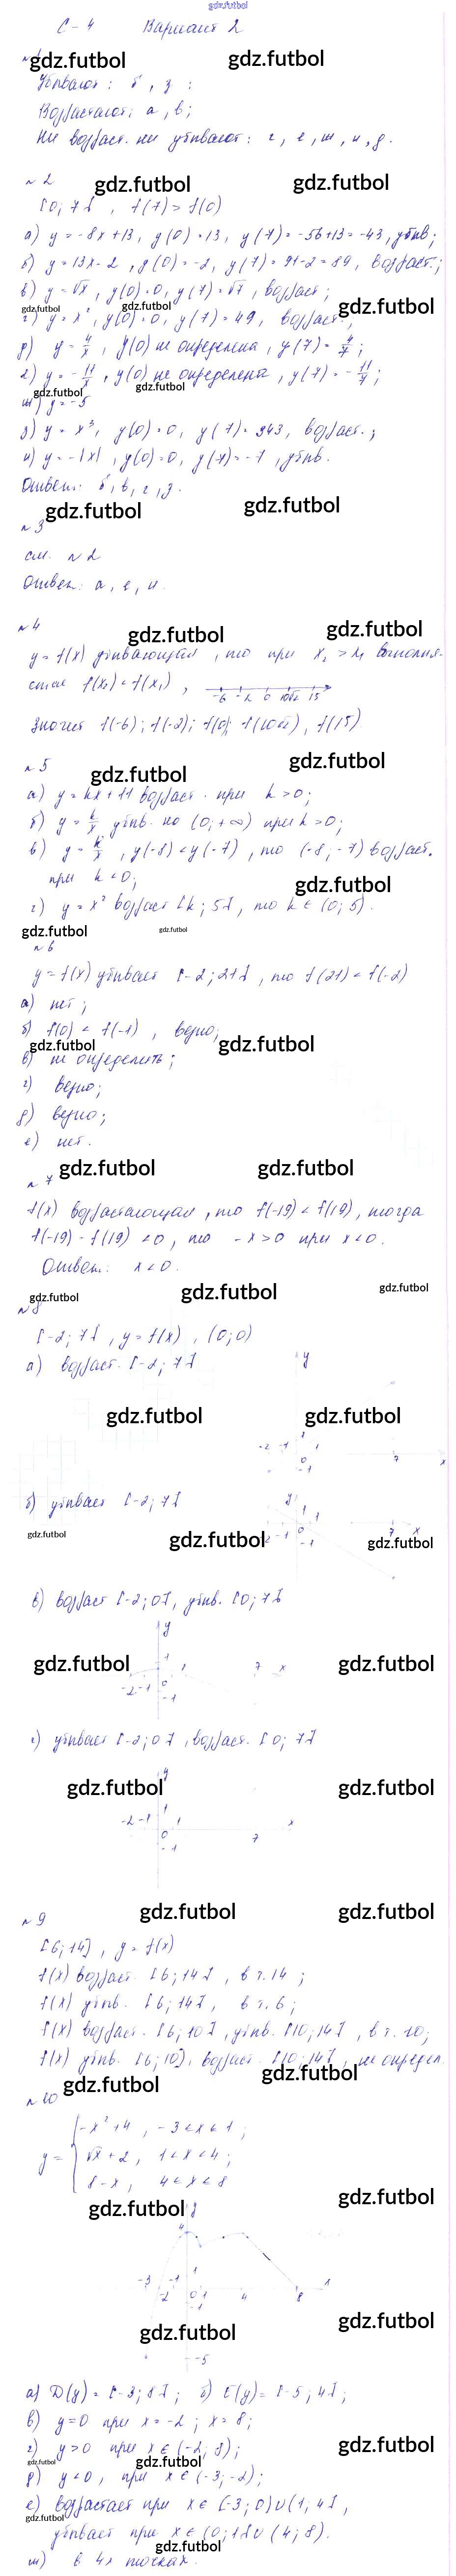 gdz.futbol
С-4 Вариант 2
№1
gdz.futbol gdz.futbol
Убывают: б, з;
Возрастают: а, в;
Ни возраст. ни убывают: г, е, ж, и, д.
№2
gdz.futbol gdz.futbol
[0; 7], f(7) > f(0)
а) y = -8x+13, y(0) = 13, y(7) = -56+13 = -43, убыв;
б) y = 13x-2, y(0) = -2, y(7) = 91-2 = 89, возраст.;
в) y = √x, y(0) = 0, y(7) = √7, возраст;
gdz.futbol gdz.futbol gdz.futbol
г) y = x², y(0) = 0, y(7) = 49, возраст.,
д) y = 4/x, y(0) не определена, y(7) = 4/7;
е) y = -11/x, y(0) не определена, y(7) = -11/7;
gdz.futbol gdz.futbol
ж) y = -5
з) y = x³, y(0) = 0, y(7) = 343, возраст.;
и) y = -|x|, y(0) = 0, y(7) = -7, убыв.
Ответ: б, в, г, з.
gdz.futbol gdz.futbol
№3
см. №2
Ответ: а, е, и.
№4
gdz.futbol gdz.futbol
y = f(x) убывающая, то при x₂ > x₁ выполня-
ется f(x₂) < f(x₁),
-6 -2 0 10√2 15
Значит f(-6); f(-2); f(0); f(10√2), f(15)
№5
gdz.futbol gdz.futbol
а) y = kx + 11 возраст. при k > 0;
б) y = k/x убыв. на (0; +∞) при k > 0;
в) y = k/x, y(-8) < y(-7), то (-8; -7) возраст.
при k < 0;
gdz.futbol
г) y = x² возраст [k; 5], то k ∈ (0; 5).
gdz.futbol gdz.futbol
№6
y = f(x) убывает [-2; 21], то f(21) < f(-2)
а) нет;
б) f(0) < f(-1), верно;
gdz.futbol gdz.futbol
в) не определить;
г) верно;
д) верно;
е) нет.
gdz.futbol gdz.futbol
№7
f(x) возрастающая, то f(-19) < f(19), тогда
f(-19) - f(19) < 0, то -x > 0 при x < 0.
Ответ: x < 0.
gdz.futbol gdz.futbol gdz.futbol
№8
[-2; 7], y = f(x), (0; 0)
а) возраст. [-2; 7]
y
gdz.futbol gdz.futbol
-2 -1 1 0 -1 7 x
б) убывает [-2; 7]
y 1 1 7 x
gdz.futbol gdz.futbol gdz.futbol
-2 -1 0 -1
в) возраст [-2; 0], убыв. [0; 7]
y
gdz.futbol gdz.futbol
1 1 7 x
-2 -1 0 -1
г) убывает [-2; 0], возраст. [0; 7]
y
gdz.futbol gdz.futbol
1
-2 -1 1 x
0 -1 7
№9
gdz.futbol gdz.futbol
[6; 14], y = f(x)
f(x) возраст. [6; 14], в т. 14;
f(x) убыв. [6; 14], в т. 6;
f(x) возраст. [6; 10], убыв. [10; 14], в т. 10;
f(x) убыв. [6; 10], возраст. [10; 14], не определ.
gdz.futbol gdz.futbol
№10
-x²+4, -3 < x < 1;
y = √x + 2, 1 < x < 4;
8-x, 4 < x < 8
gdz.futbol gdz.futbol
y
4
1
-3 -2 -1 0 1 4 8 x
-1
gdz.futbol gdz.futbol
-5
а) D(y) = [-3; 8]; б) E(y) = [-5; 4];
в) y = 0 при x = -2; x = 8;
г) y > 0 при x ∈ (-2; 8);
gdz.futbol gdz.futbol gdz.futbol
д) y < 0, при x ∈ (-3; -2);
е) возрастает при x ∈ [-3; 0) ∪ (1; 4],
gdz.futbol
убывает при x ∈ (0; 1] ∪ (4; 8).
gdz.futbol
ж) в 4х точках.